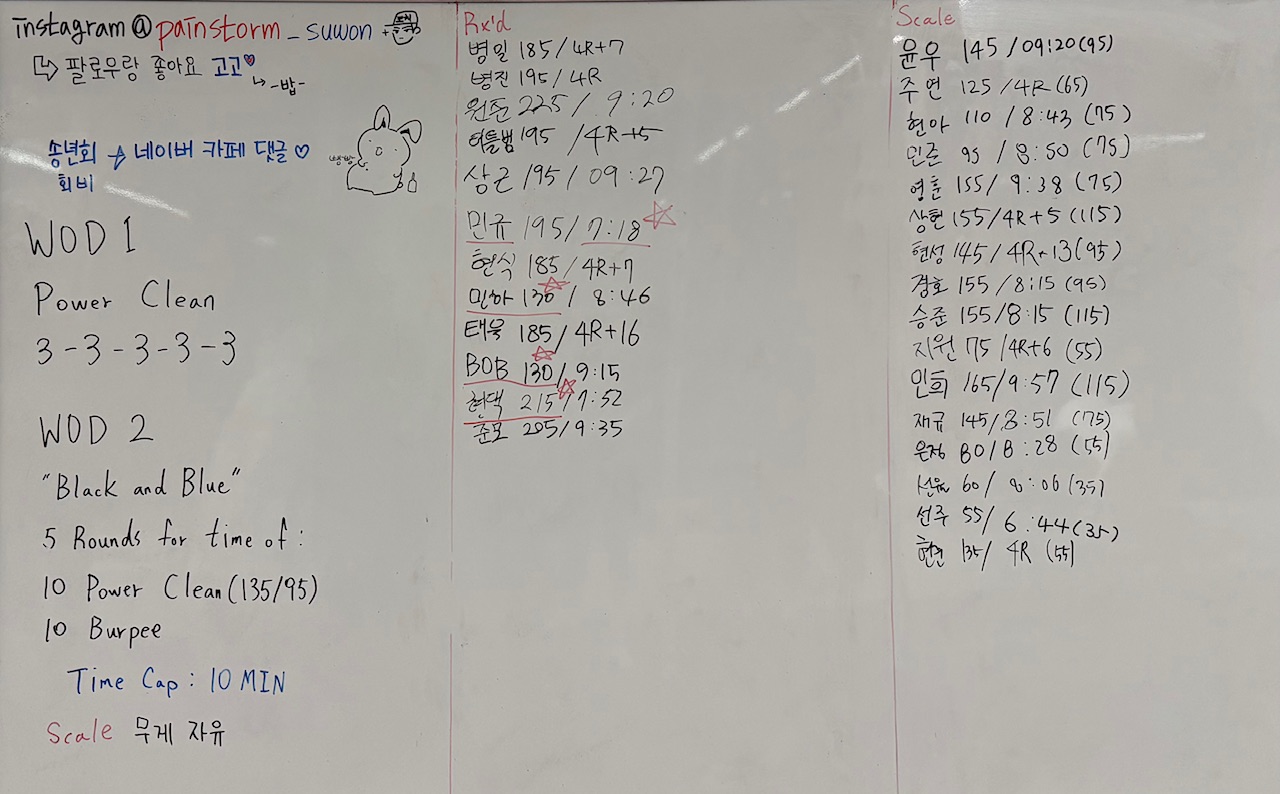 instagram@painstorm_suwon
팔로우랑 좋아요 고고♥
-밥-
송년회 → 네이버 카페 댓글 ♡
회비
빵빵
WOD 1
Power Clean
3-3-3-3-3
WOD 2
"Black and Blue"
5 Rounds for time of:
10 Power Clean(135/95)
10 Burpee
Time Cap: 10 MIN
Scale 무게 자유
Rx'd
병일 185/4R+7
병진 195/4R
원준 225/ 9:20
터틀범 195 /4R+5
상근 195/ 09:27
민규 195/7:18 ☆
현식 185/4R+7
민하 130 / 8:46
태욱 185/4R+16
BOB 130/9:15
현택 215/7:52
준모 205/9:35
Scale
윤우 145 /09:20(95)
주연 125 /4R(65)
현아 110 / 8:43 (75)
민준 95 / 8:50 (75)
영훈 155/ 9:38 (75)
상헌 155/4R+5 (115)
현성 145/4R+13(95)
경호 155 /8:15 (95)
승준 155/8:15 (115)
지원 75 /4R+6 (55)
민희 165/9:57 (115)
재규 145/8:51 (75)
은정 80/8:28 (55)
60/ 8:06(35)
선주 55/ 6:44(35)
135/ 4R (55)